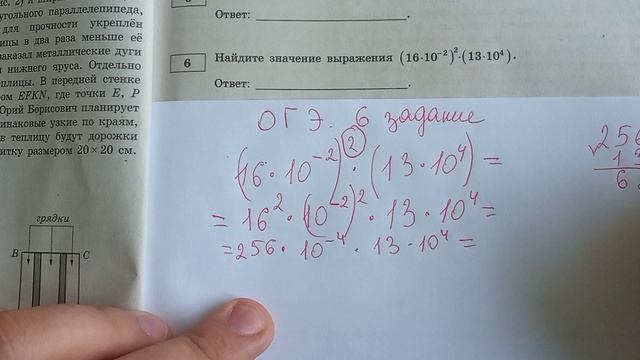 угольного параллелепипеда,
для прочности укреплён
ицы в два раза меньше её
заказал металлические дуги
и нижнего яруса. Отдельно
плицы. В передней стенке
ом EFKN, где точки E, P
Юрий Борисович планирует
инаковые узкие по краям,
в теплицу будут дорожки
итку размером 20×20 см.
грядки
B C
Ответ:
6 Найдите значение выражения (16·10⁻²)²·(13·10⁴).
Ответ:
ОГЭ. 6 задание
(16·10⁻²)² · (13·10⁴) =
= 16² · (10⁻²)² · 13 · 10⁴ =
= 256 · 10⁻⁴ · 13 · 10⁴ =
256